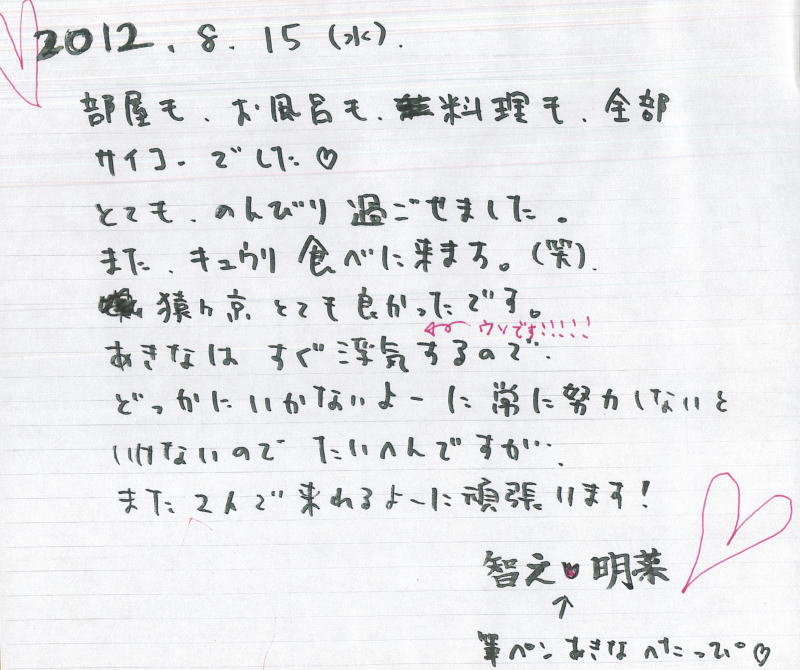 2012. 8. 15 (水).
部屋も、お風呂も、料理も、全部
サイコーでした♡
とても、のんびり過ごせました。
また、キュウリ食べに来ます。(笑).
猿ヶ京とても良かったです。
← ウソです!!!!!
あきなはすぐ浮気するので、
どっかにいかないよーに常に努力しないと
いけないのでたいへんですが…
また2人で来れるよーに頑張ります!
智え♥明菜
↑
筆ペン あきな へたっぴ♡